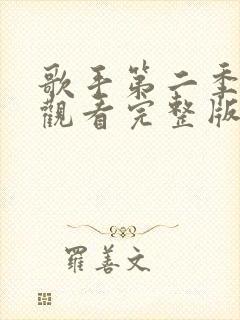 歌手第二季
觀看完整版
羅善文